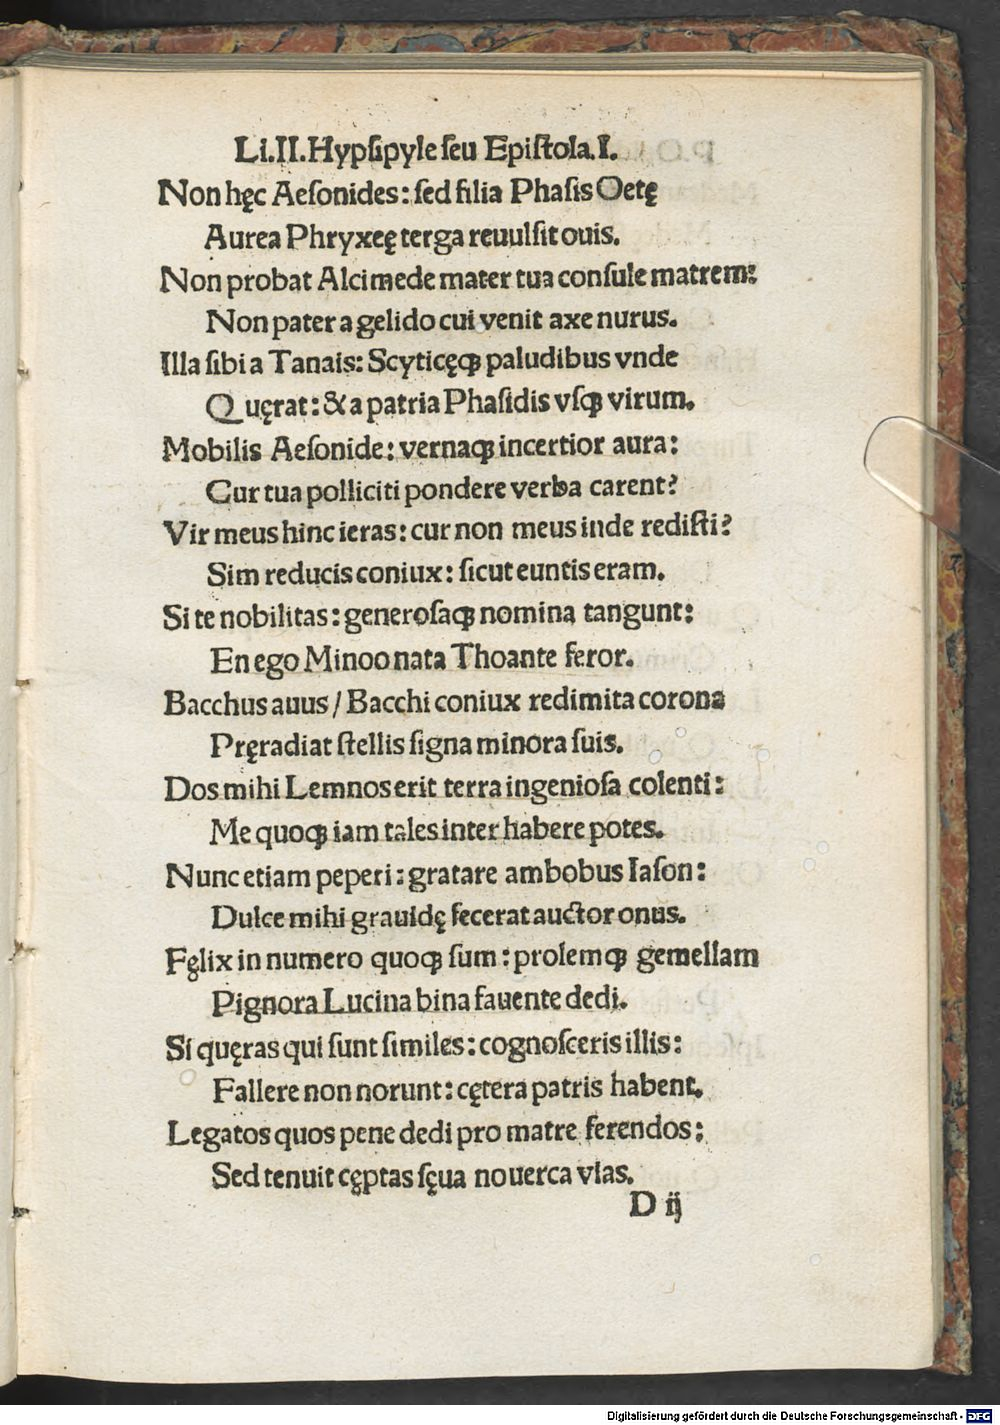 Li.II.Hypsipyle seu Epistola.I.
Non hęc Aesonides: sed filia Phasis Oetę
Aurea Phryxeę terga reuulsit ouis.
Non probat Alcimede mater tua consule matrem:
Non pater a gelido cui venit axe nurus.
Illa sibi a Tanais: Scyticęqꝫ paludibus vnde
Quęrat: & a patria Phasidis vsqꝫ virum.
Mobilis Aesonide: vernaqꝫ incertior aura:
Cur tua polliciti pondere verba carent?
Vir meus hinc ieras: cur non meus inde redisti?
Sim reducis coniux: sicut euntis eram.
Si te nobilitas: generosaqꝫ nomina tangunt:
En ego Minoo nata Thoante feror.
Bacchus auus / Bacchi coniux redimita corona
Pręradiat stellis signa minora suis.
Dos mihi Lemnos erit terra ingeniosa colenti:
Me quoqꝫ iam tales inter habere potes.
Nunc etiam peperi: gratare ambobus Iason:
Dulce mihi grauidę fecerat auctor onus.
Fęlix in numero quoqꝫ sum: prolemqꝫ gemellam
Pignora Lucina bina fauente dedi.
Si quęras qui sunt similes: cognosceris illis:
Fallere non norunt: cętera patris habent.
Legatos quos pene dedi pro matre ferendos:
Sed tenuit cęptas sęua nouerca vias.
D ij
Digitalisierung gefördert durch die Deutsche Forschungsgemeinschaft - DFG